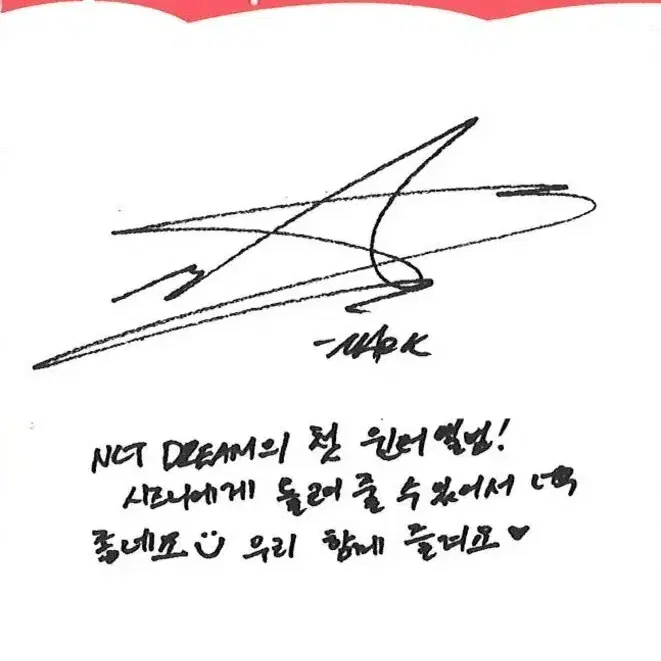 -MARK
NCT DREAM의 첫 윈터앨범!
시즈니에게 들려줄 수 있어서 너무
좋네요 우리 함께 즐겨요♥